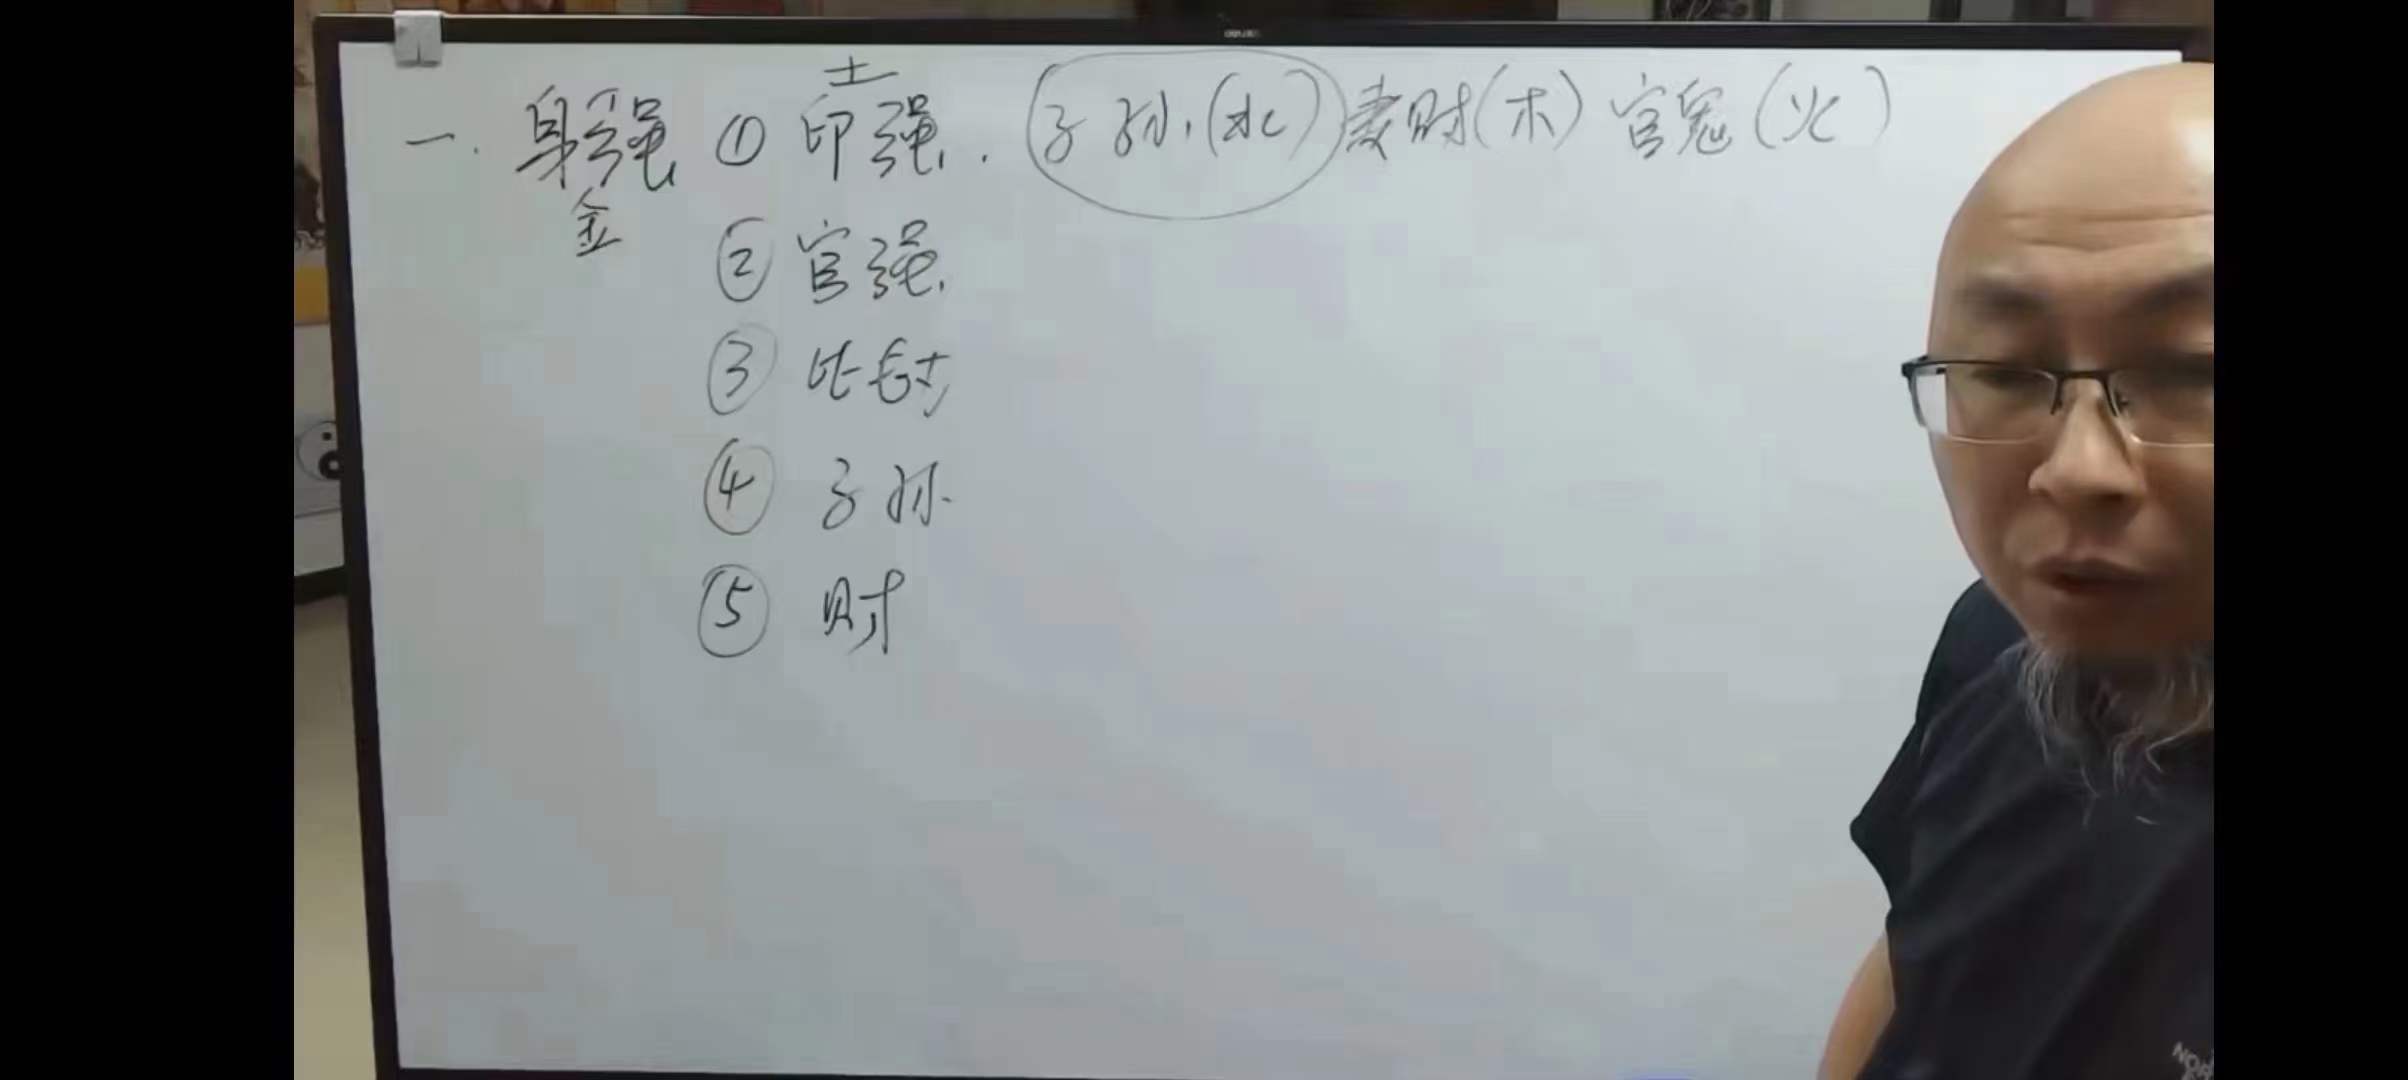 土
一. 身强 ① 印强. 子孙(水) 妻财(木) 官鬼(火)
金
② 官强
③ 比劫
④ 子孙
⑤ 财